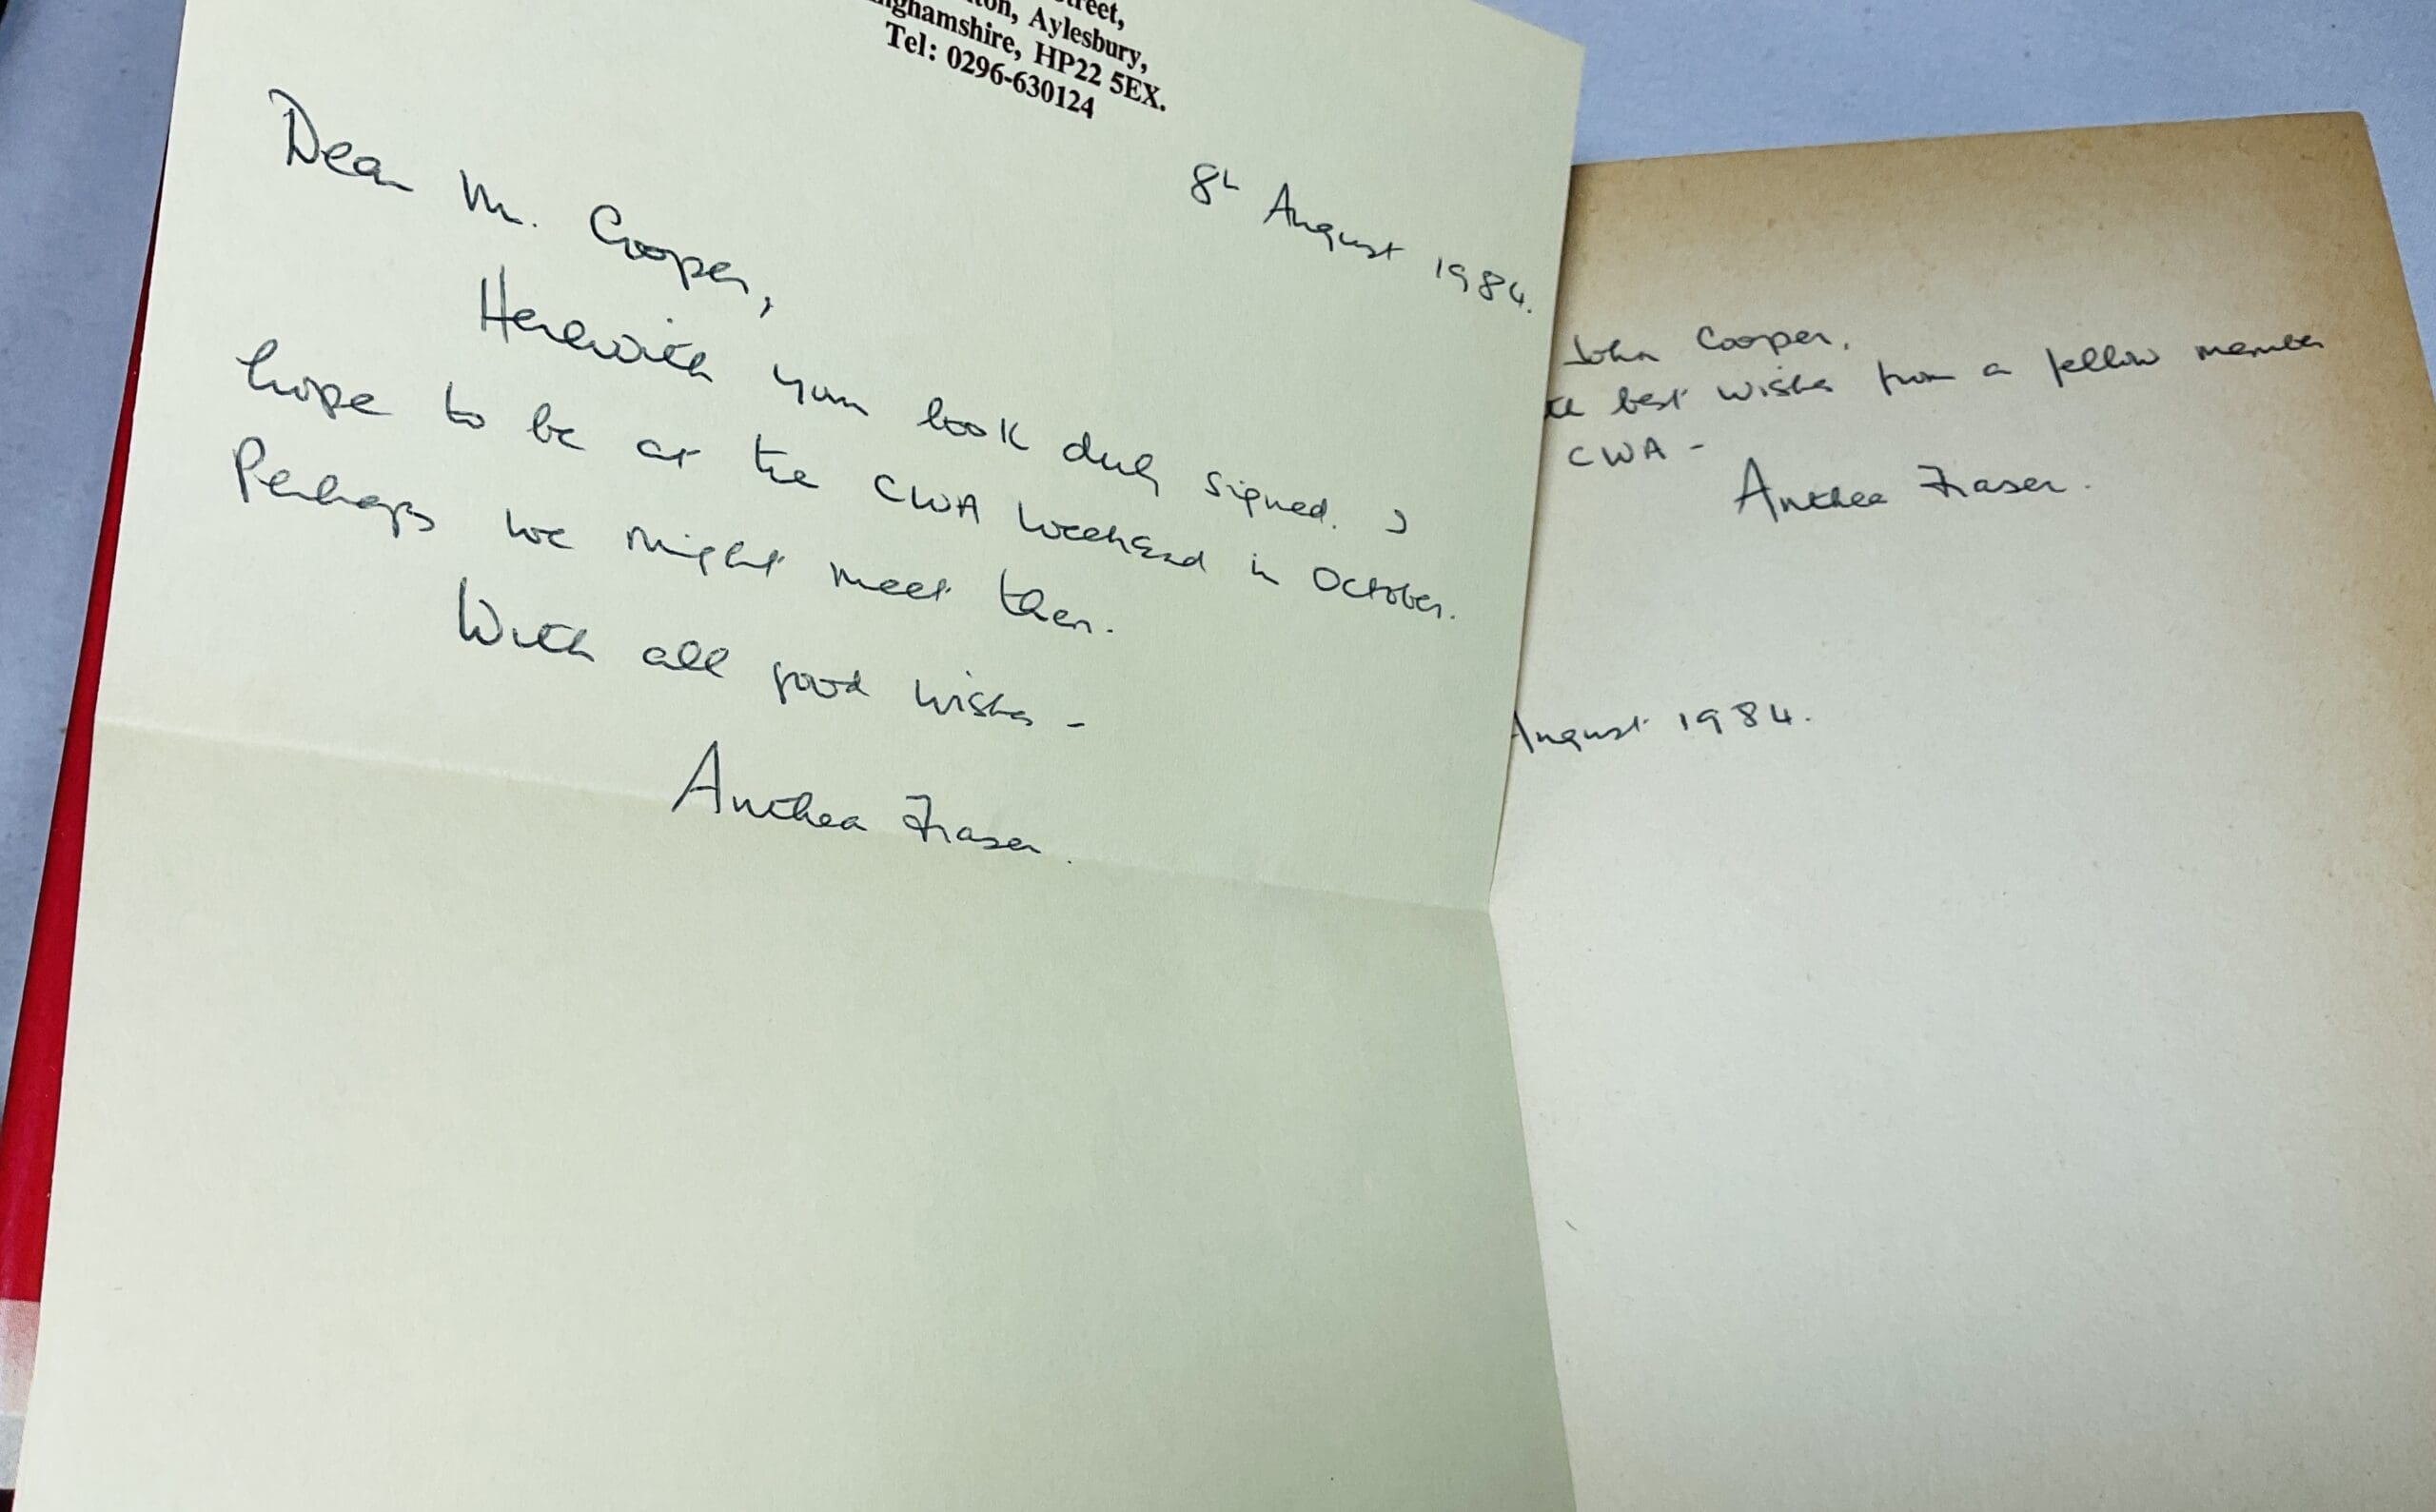 treet,
ton, Aylesbury,
nghamshire, HP22 5EX.
Tel: 0296-630124
8th August 1984.
Dear Mr. Cooper,
Herewith your book duly signed. I
hope to be at the CWA weekend in October.
Perhaps we might meet then.
With all good wishes -
Anthea Fraser.
John Cooper,
best wishes from a fellow member
CWA -
Anthea Fraser.
August 1984.